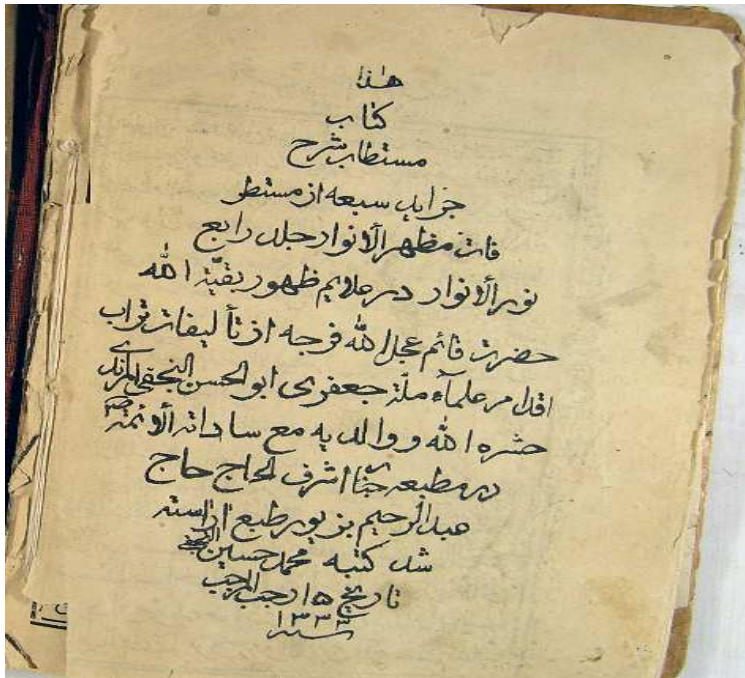 هذا
کتاب
مستطاب شرح
جزایر سبعه از مستطر
فات مظهر الانوار جلد رابع
نور الانوار در علایم ظهور بقیّة الله
حضرت قائم عجل الله فرجه از تألیفات تراب
اقدام علمآء ملة جعفری ابو الحسن النجفی المرندی
حشره الله و والدیه مع ساداته الائمة
در مطبعه جناب اشرف الحاج حاج
عبد الرحیم بزیور طبع اراسته
شد کتبه محمد حسین
تاریخ ۱۵ رجب المرجب
سنه ۱۳۳۳